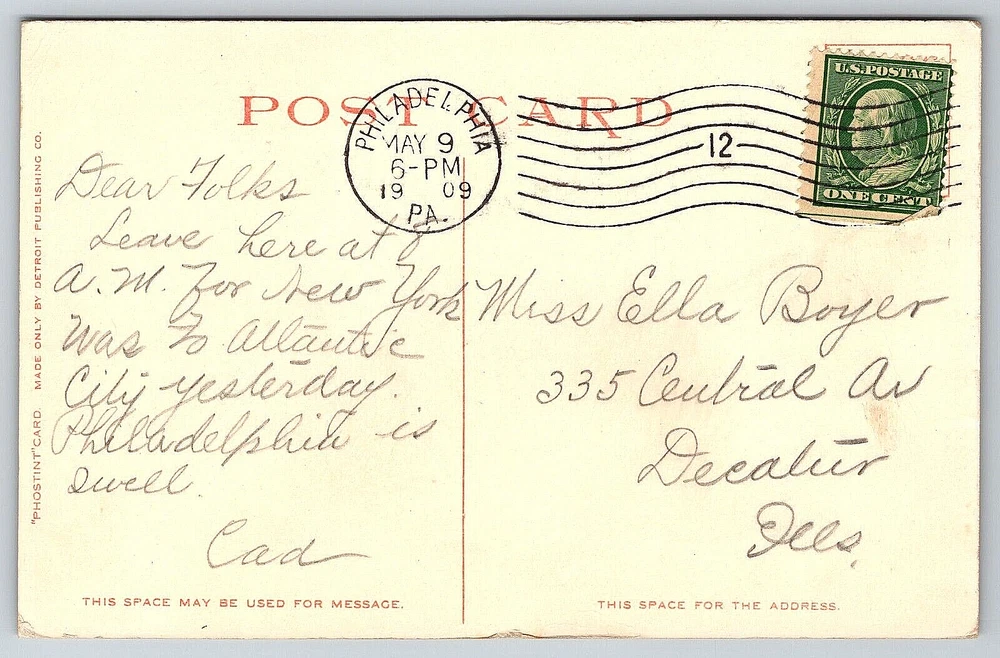 POST CARD
PHILADELPHIA
MAY 9
6-PM
1909
PA.
12
U.S. POSTAGE
ONE CENT
Dear Folks
Leave here at 8
A.M. For New York
Was to Atlantic
City yesterday.
Philadelphia is
swell.
Cad
Miss Ella Boyer
335 Central Av
Decatur
Ills.
"PHOSTINT" CARD. MADE ONLY BY DETROIT PUBLISHING CO.
THIS SPACE MAY BE USED FOR MESSAGE.
THIS SPACE FOR THE ADDRESS.